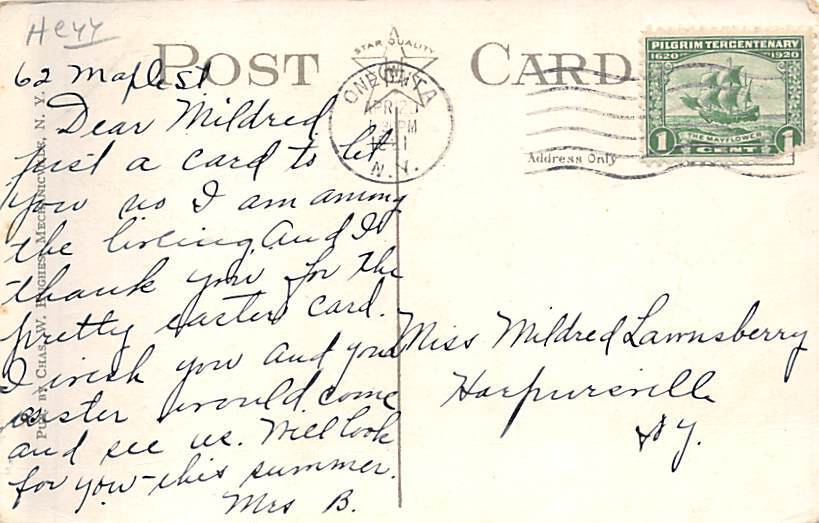 Heyy
POST CARD
STAR QUALITY
ONEONTA
APR 2
PM
N.Y.
PILGRIM TERCENTENARY
1620 1920
THE MAYFLOWER
1 CENT 1
Address Only
PUB. BY CHAS. W. HUGHES, MECHANICVILLE, N. Y.
62 Maple St
Dear Mildred
just a card to let
you no I am among
the living. And I
thank you for the
pretty easter card.
I wish you and your
sister would come
and see us. Will look
for you this summer.
Mrs B.
Miss Mildred Lawnsberry
Harpursville
N Y.